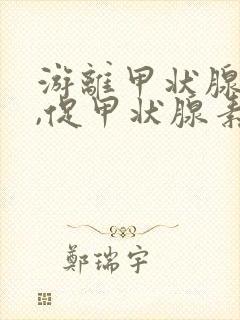 游離甲状腺
,促甲状腺素
鄭瑞宇